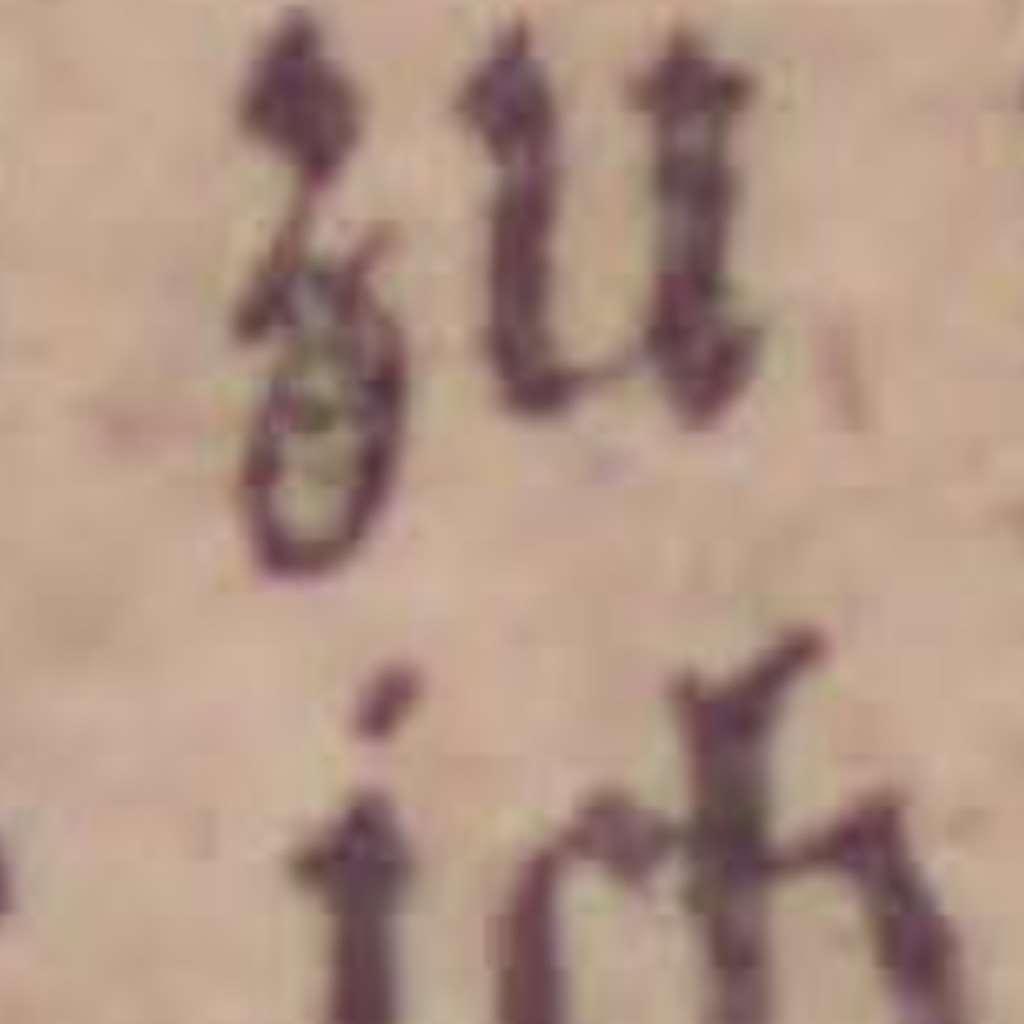 zu
ich